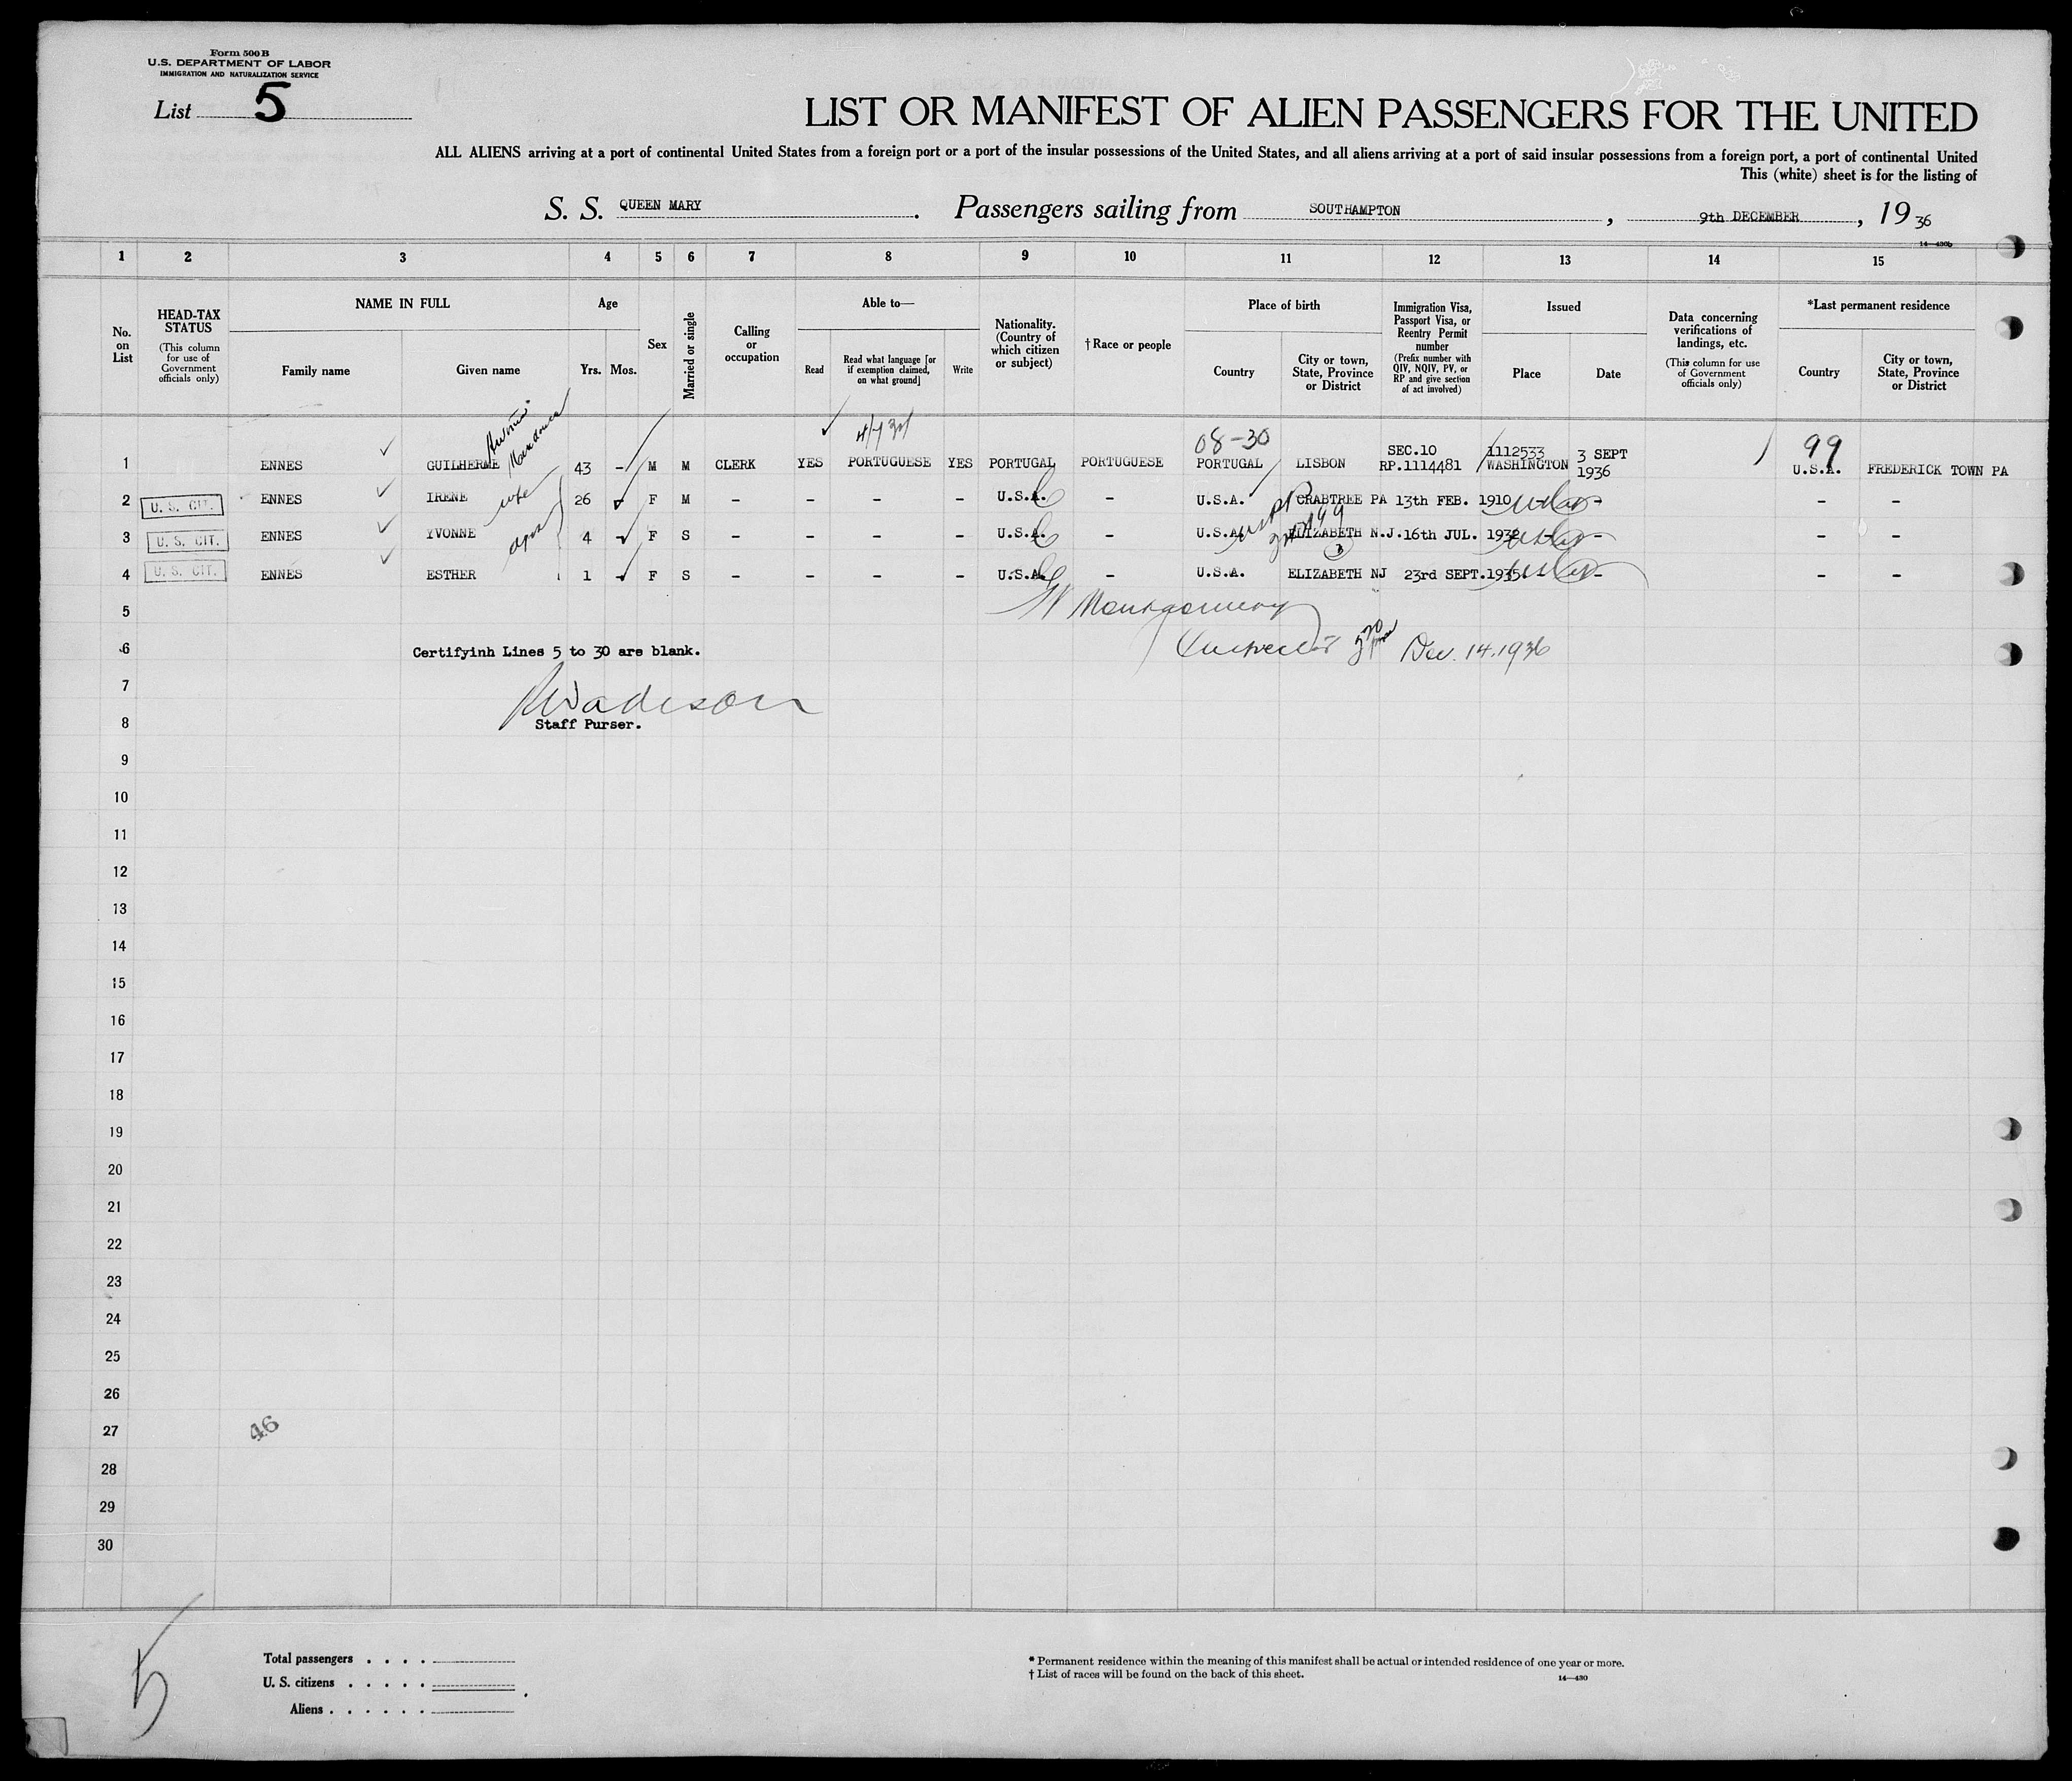 Form 500 B
U.S. DEPARTMENT OF LABOR
IMMIGRATION AND NATURALIZATION SERVICE
List 5
LIST OR MANIFEST OF ALIEN PASSENGERS FOR THE UNITED
ALL ALIENS arriving at a port of continental United States from a foreign port or a port of the insular possessions of the United States, and all aliens arriving at a port of said insular possessions from a foreign port, a port of continental United
This (white) sheet is for the listing of
S. S. QUEEN MARY . Passengers sailing from SOUTHAMPTON , 9th DECEMBER , 19 36
14—430b
1 2 3 4 5 6 7 8 9 10 11 12 13 14 15
No. on List
HEAD-TAX STATUS
(This column for use of Government officials only)
NAME IN FULL
Family name
Given name
Age
Yrs. Mos.
Sex
Married or single
Calling or occupation
Able to—
Read
Read what language [or if exemption claimed, on what ground]
Write
Nationality. (Country of which citizen or subject)
† Race or people
Place of birth
Country
City or town, State, Province or District
Immigration Visa, Passport Visa, or Reentry Permit number
(Prefix number with QIV, NQIV, PV, or RP and give section of act involved)
Issued
Place
Date
Data concerning verifications of landings, etc.
(This column for use of Government officials only)
*Last permanent residence
Country
City or town, State, Province or District
08-30 SEC.10 1112533 3 SEPT 99
1 ENNES GUILHERME 43 - M M CLERK YES PORTUGUESE YES PORTUGAL PORTUGUESE PORTUGAL LISBON RP.1114481 WASHINGTON 1936 U.S.A. FREDERICK TOWN PA
2 U. S. CIT. ENNES IRENE wife 26 - F M - - - - U.S.A. - U.S.A. CRABTREE PA 13th FEB. 1910 - - -
3 U. S. CIT. ENNES YVONNE 4 - F S - - - - U.S.A. - U.S.A. ELIZABETH N.J. 16th JUL. 1932 - - -
4 U. S. CIT. ENNES ESTHER 1 - F S - - - - U.S.A. - U.S.A. ELIZABETH NJ 23rd SEPT. 1935 - - -
5 Montgomery
6 Certifyinh Lines 5 to 30 are blank. Dec. 14. 1936
7
8 Staff Purser.
9
10
11
12
13
14
15
16
17
18
19
20
21
22
23
24
25
26
27 46
28
29
30
5
Total passengers . . . .
U. S. citizens . . . . .
Aliens . . . . . .
* Permanent residence within the meaning of this manifest shall be actual or intended residence of one year or more.
† List of races will be found on the back of this sheet.
14—430